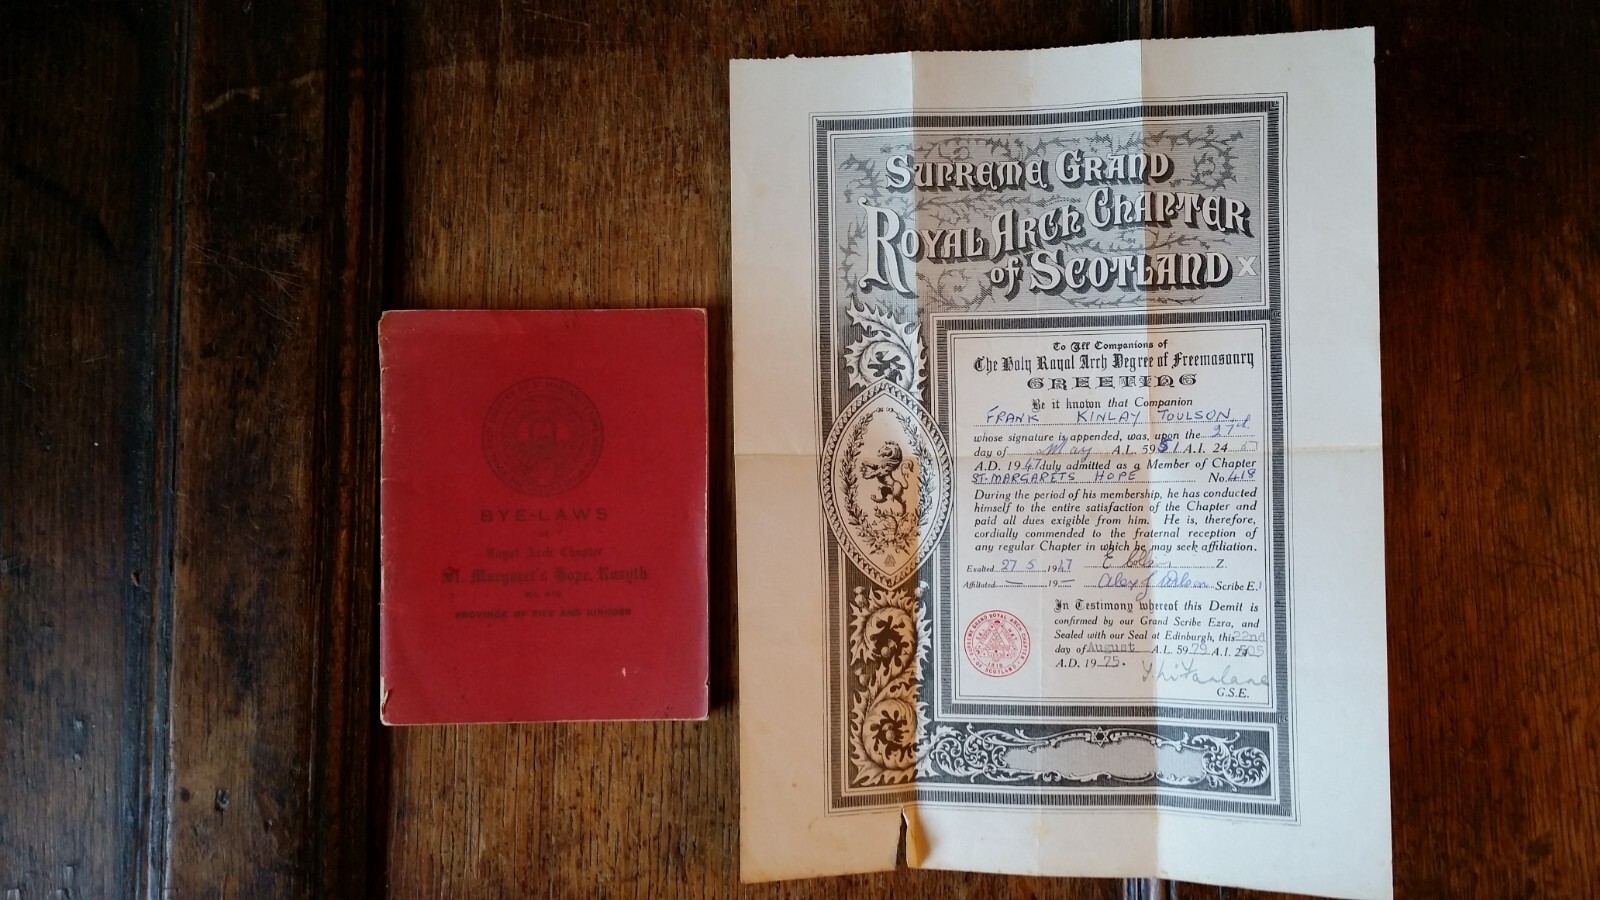 BYE-LAWS
OF
Royal Arch Chapter
St. Margaret's Hope, Rosyth
No. 418
PROVINCE OF FIFE AND KINROSS
SUPREME GRAND
ROYAL ARCH CHAPTER
of SCOTLAND X
To All Companions of
The Holy Royal Arch Degree of Freemasonry
GREETING
Be it known that Companion
FRANK KINLAY TOULSON
whose signature is appended, was, upon the 27th
day of May A.L. 5951 A.I. 24
A.D. 1947 duly admitted as a Member of Chapter
ST. MARGARETS HOPE No. 418
During the period of his membership, he has conducted
himself to the entire satisfaction of the Chapter and
paid all dues exigible from him. He is, therefore,
cordially commended to the fraternal reception of
any regular Chapter in which he may seek affiliation.
Exalted 27 5 1947 Z.
Affiliated — 19 — Scribe E.
In Testimony whereof this Demit is
confirmed by our Grand Scribe Ezra, and
Sealed with our Seal at Edinburgh, this 22nd
day of August A.L. 5979 A.I. 2505
A.D. 1975.
G.S.E.
SUPREME GRAND ROYAL ARCH CHAPTER
OF SCOTLAND